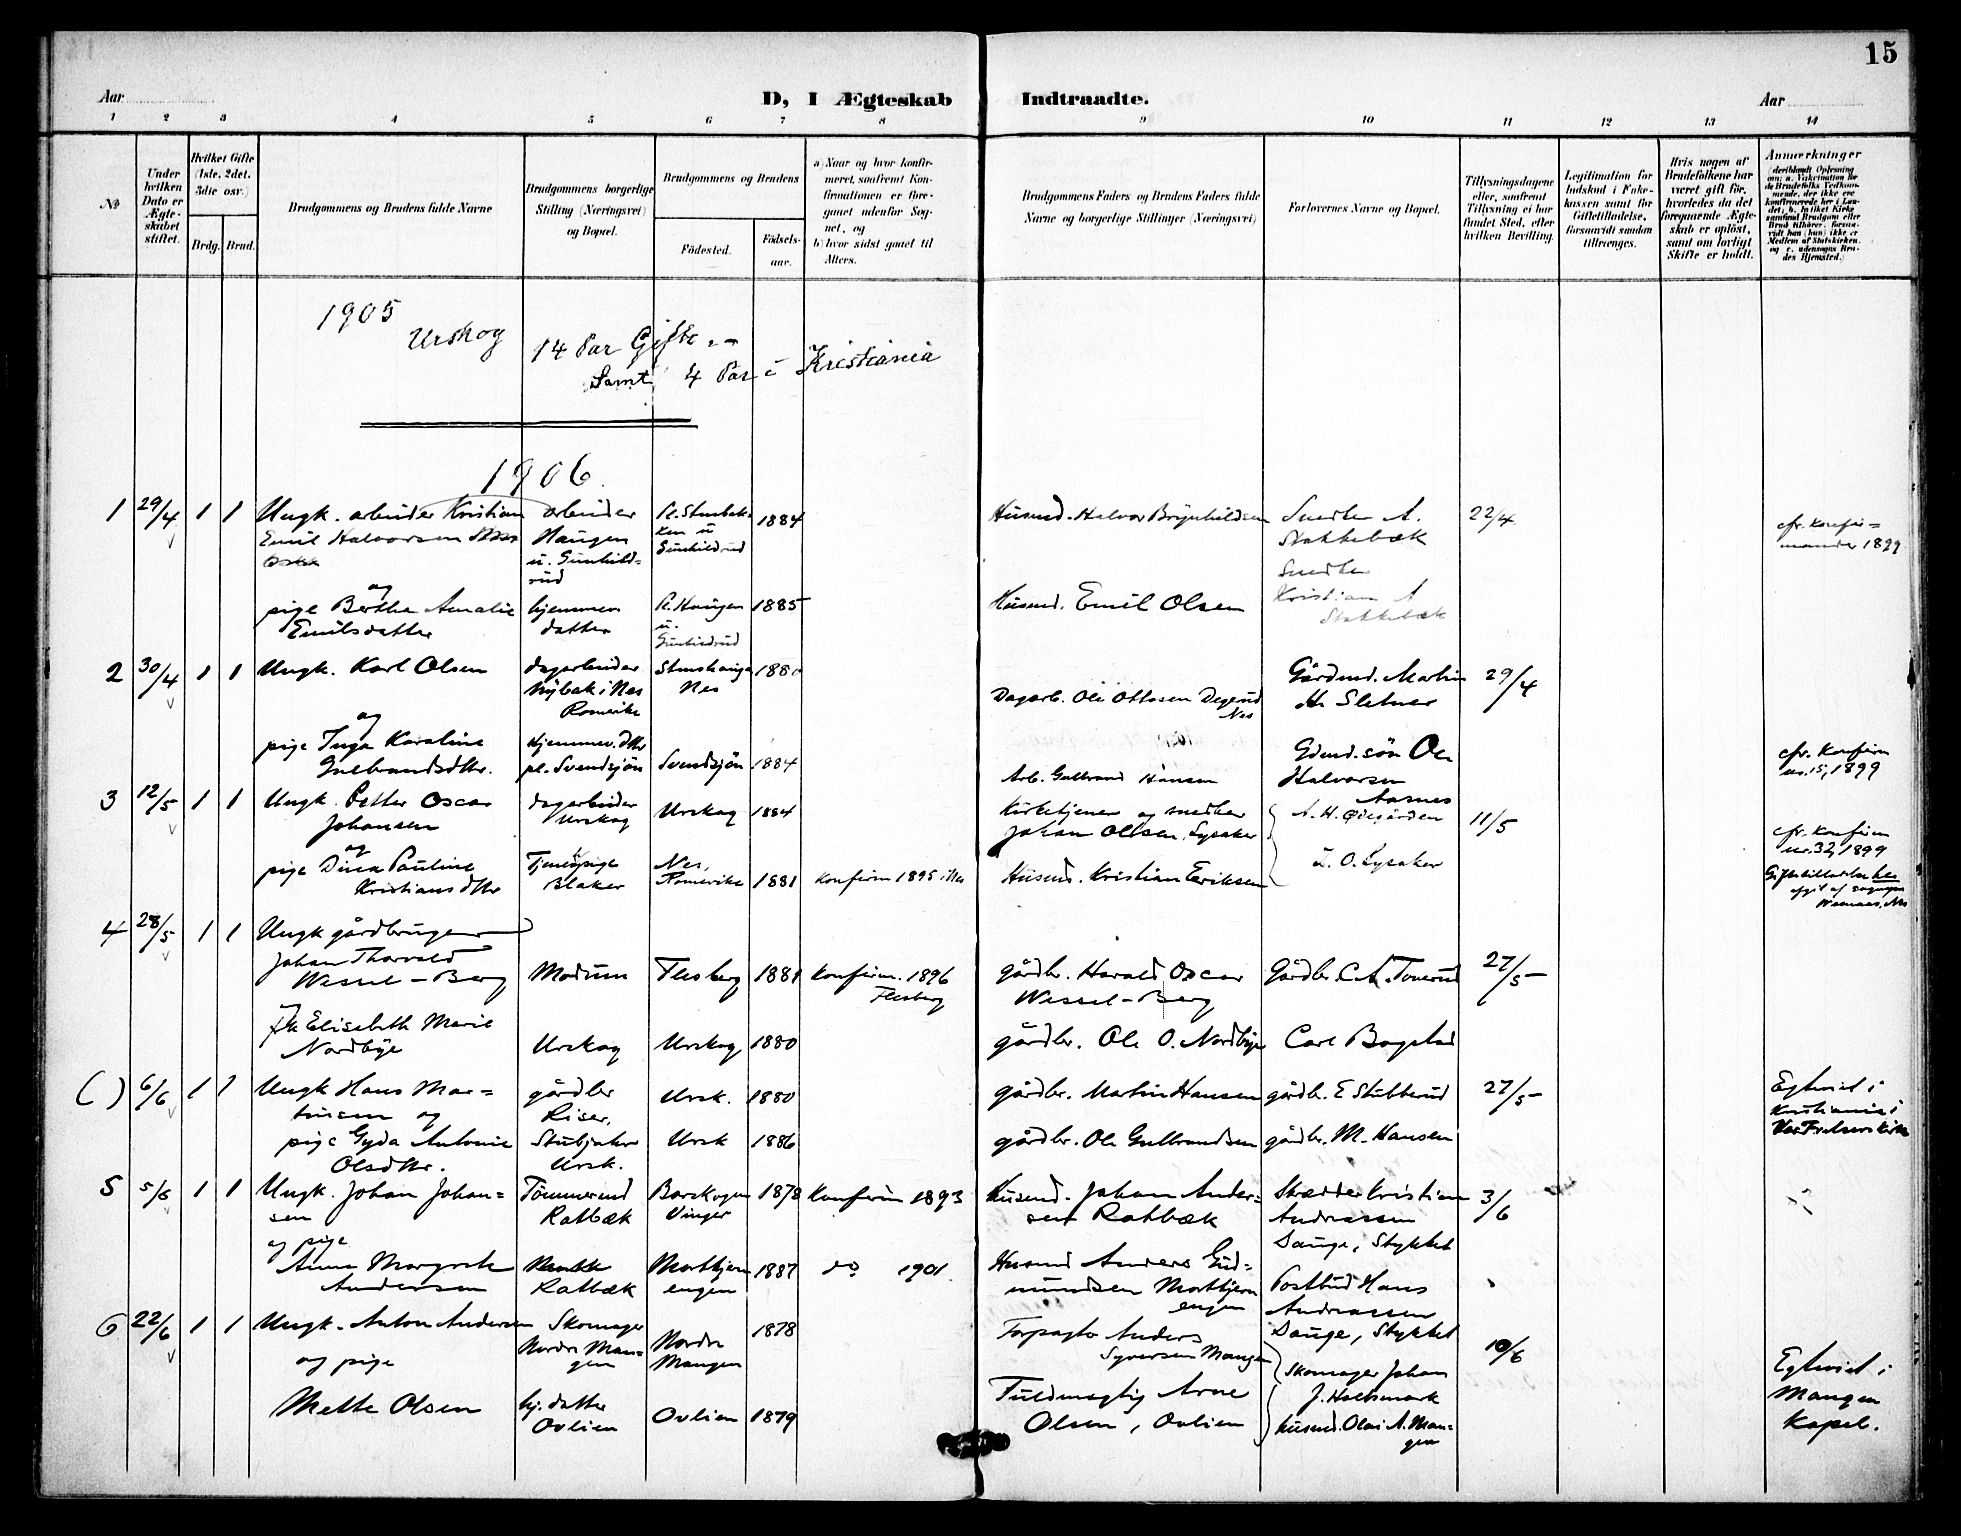 15
Aar
D, I Ægteskab Indtraadte.
Aar
1 2 3 4 5 6 7 8 9 10 11 12 13 14
No
Under hvilken Dato er Ægteskabet stiftet.
Hvilket Gifte (1ste, 2det, 3die osv.)
Brdg. Brud.
Brudgommens og Brudens fulde Navne
Brudgommens borgerlige Stilling (Næringsvei) og Bopæl.
Brudgommens og Brudens
Fødested.
Fødselsaar.
a) Naar og hvor konfirmeret, saafremt Konfirmationen er foregaaet udenfor Sognet, og
b) hvor sidst gaaet til Alters.
Brudgommens Faders og Brudens Faders fulde Navne og borgerlige Stillinger (Næringsvei)
Forlovernes Navne og Bopæl.
Tillysningsdagene eller, saafremt Tillysning ei har fundet Sted, efter hvilken Bevilling.
Legitimation for Indskud i Enkekassen samt for Giftetilladelse, forsaavidt saadan tiltrænges.
Hvis nogen af Brudefolkene har været gift før, hvorledes da det foregaaende Ægteskab er opløst, samt om lovligt Skifte er holdt.
Anmærkninger
1905
Urskog 14 Par Gifte
Samt 4 Par i Kristiania
1906
1 29/4 1 1 Ungk. arbeider Kristian
Emil Halvorsen
arbeider
Haugen
u. Gunhildrud
1884
Husmd. Halvor Brynhildsen
Snedker A.
Stokkebæk
22/4
cfr. konfirmander 1899
og
pige Berthe Amalie
Emilsdatter
hjemmev.
datter
Pl. Haugen
u.
Gunhildrud
1885
Husmd. Emil Olsen
Snedker
Kristian A
Stokkebæk
2 30/4 1 1 Ungk. Karl Olsen
dagarbeider
Nybak i Nes
Romerike
Nes
Dagarb. Ole Ottosen Degerud
Nes
Gårdmd. Martin
H. Sletner
29/4
og
pige Inga Karoline
Gulbrandsdtr.
Hjemmev. dtr
pl. Svendsjön
Svendsjön
1884
Arb. Gulbrand Hansen
Gdmd. sön Ole
Halvorsen
Aasnes
cfr. Konfirm
nr. 15, 1899
3 12/5 1 1 Ungk. Petter Oscar
Johansen
dagarbeider
Urskog
Urskog
1884
Kirketjener og snedker
Johan Olsen, Lysaker
A. H. Ødegården
11/5
cfr. konfirm
nr. 32, 1899
og
pige Dina Pauline
Kristiansdtr
Tjenepige
Blaker
Nes,
Romerike
1881
konfirm 1895 i Nes
Husmd. Kristian Eriksen
L. O. Lysaker
4 28/5 1 1 Ungk gårdbruger
Johan Thorvald
Wessel-Berg
Modum
Flesberg
1881
konfirm. 1896
Flesberg
gårdbr. Harald Oscar
Wessel-Berg
Gårdbr. C. A. Tonerud
27/5
Elisabeth Marie
Nordbye
Urskog
Urskog
1880
gårdbr. Ole O. Nordbye
Carl Bogstad
( ) 6/6 1 1 Ungk Hans Martinsen og
gårdbr
Riser,
Ursk.
1880
gårdbr. Martin Hansen
gårdbr. E Stubberud
27/5
Egteviet i
Kristiania i
Vor Frelsers kirke
pige Gyda Antonie
Olsdtr.
Ursk.
Ursk
1886
gårdbr. Ole Gulbrandsen
gårdbr. M. Hansen
5 5/6 1 1 Ungk. Johan Johansen
Tömmermd
Ratbæk
Barskogen
Vinger
1878
Konfirm 1893
Husmd. Johan Andersen Ratbæk
Skrædder Kristian
Andreassen
Dauge, Stykket
3/6
og pige
Anna Margrete
Andersen
Ratbæk
Mortkjernengen
1887
do 1901
Husmd Anders Gudmundsen Mortkjernengen
Postbud Hans
Andreassen
Dauge, Stykket
6 22/6 1 1 Ungk. Anton Andersen
og pige
Skomager
Nordre Mangen
Nordre
Mangen
1878
Anders
Syversen Mangen
Skomager Johan
J. Holtsmark
10/6
Egteviet i
Mangen
Kapel.
Mette Olsen
hj. datter
Ovlien
Ovlien
1879
Fuldmægtig Arne
Olsen, Ovlien
husmd. Olai A. Mangen